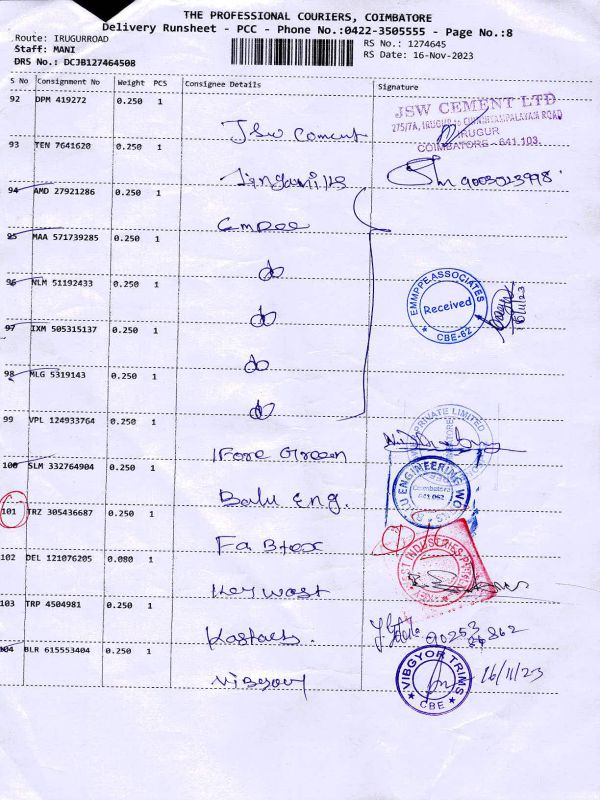 THE PROFESSIONAL COURIERS, COIMBATORE
Delivery Runsheet - PCC - Phone No.:0422-3505555 - Page No.:8
Route: IRUGURROAD
RS No.: 1274645
Staff: MANI
RS Date: 16-Nov-2023
DRS No.: DCJB127464508
S No Consignment No Weight PCS Consignee Details Signature
92 DPM 419272 0.250 1
JSW Cement
JSW CEMENT LTD
IRUGUR
COIMBATORE - 641 103.
93 TEN 7641620 0.250 1
9003023998
94 AMD 27921286 0.250 1
Empee
95 MAA 571739285 0.250 1
do
96 NLM 51192433 0.250 1
do
EMMPPE ASSOCIATES
Received
CBE-62
16/11/23
97 IXM 505315137 0.250 1
do
98 MLG 5319143 0.250 1
do
99 VPL 124933764 0.250 1
Fore Green
PRIVATE LIMITED
100 SLM 332764904 0.250 1
Balu Eng.
ENGINEERING
Coimbatore
641 062
101 TRZ 305436687 0.250 1
Fabtex
102 DEL 121076205 0.080 1
Key West
103 TRP 4504981 0.250 1
104 BLR 615553404 0.250 1
Vibgyor
VIBGYOR TRIMS
CBE
16/11/23